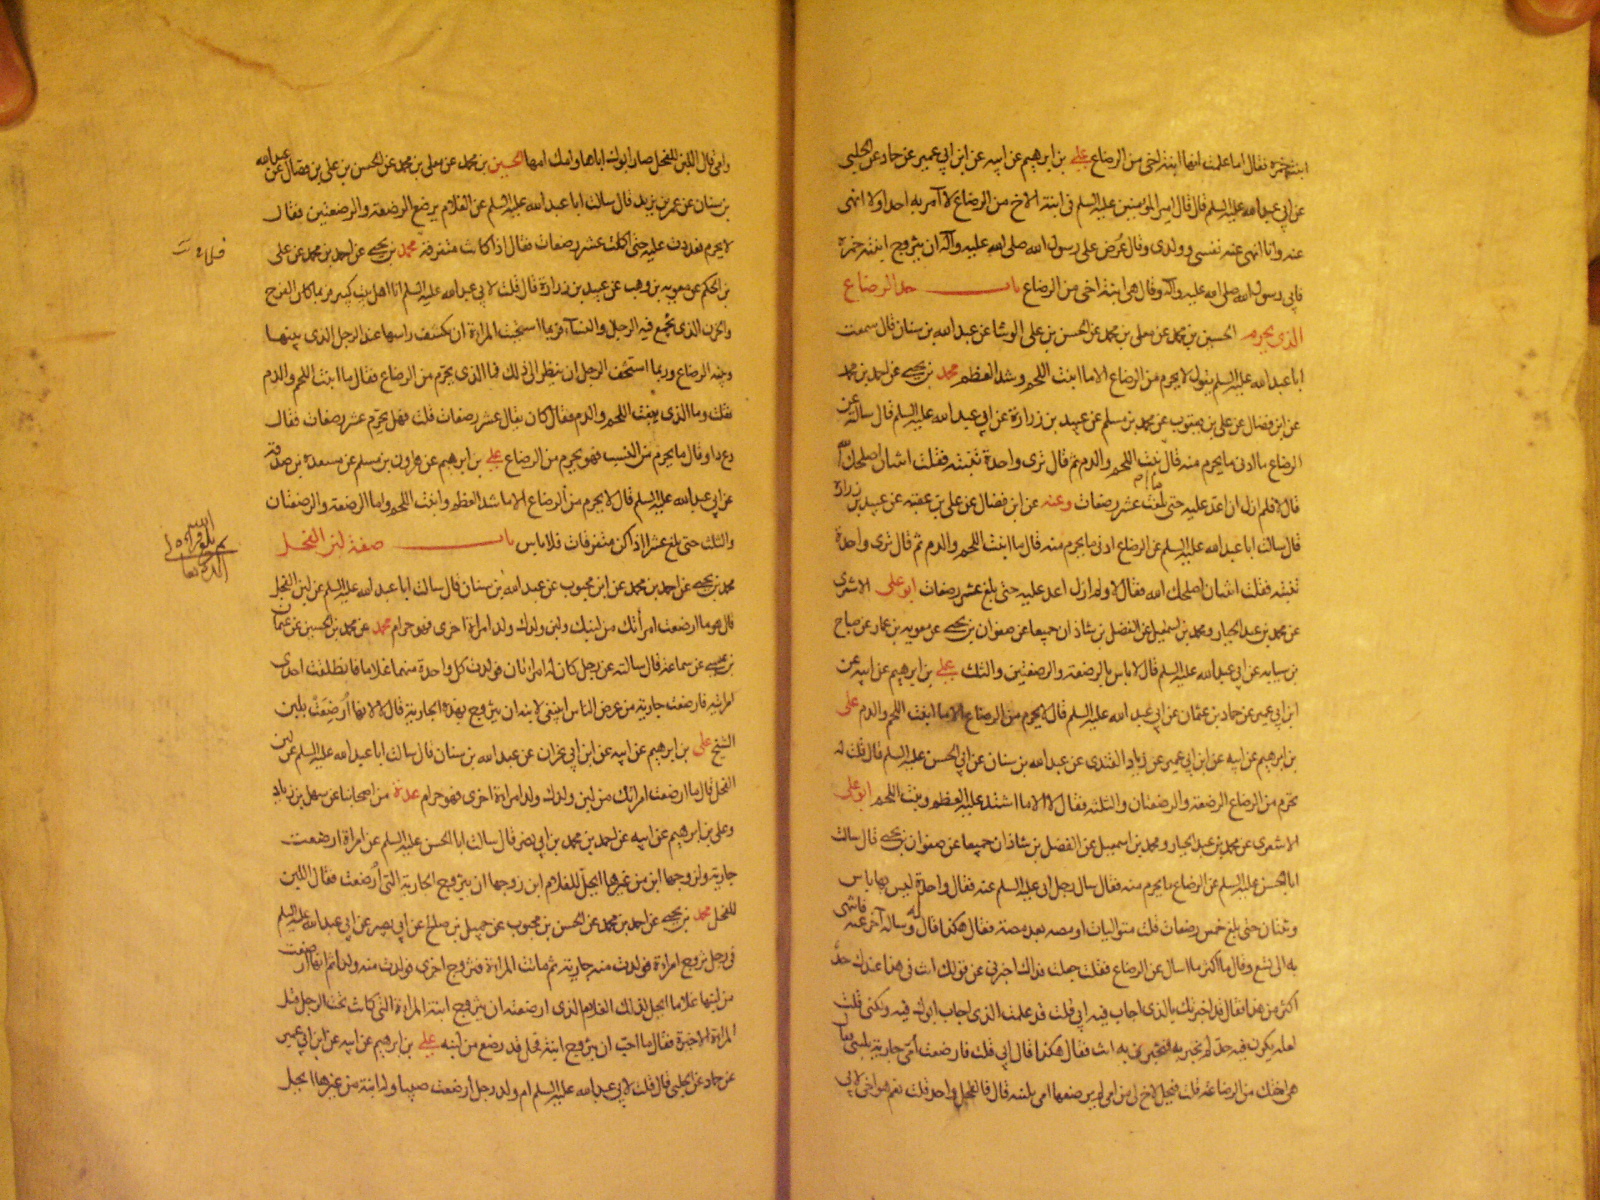 ابنة حمزة فقال اما علمت انها ابنة اخى من الرضاع على بن ابرهيم عن ابيه عن ابن ابي عمير عن حماد عن الحلبى
عن ابي عبد الله عليه السلم قال قال امير المومنين عليه السلم فى ابنة الاخ من الرضاع لا آمر به احدا ولا انهى
عنه وانا انهى عنه نفسى وولدى وقال عُرض على رسول الله صلى الله عليه وآله ان يتزوج ابنة حمزة
فابى رسول الله صلى الله عليه وآله وقال هى ابنة اخى من الرضاع باب حد الرضاع
الذى يحرم الحسين بن محمد عن معلى بن محمد عن الحسن بن على الوشا عن عبد الله بن سنان قال سمعت
ابا عبد الله عليه السلم يقول لا يحرم من الرضاع الا ما انبت اللحم وشد العظم محمد بن يحيى عن احمد بن محمد
عن ابن فضال عن على بن يعقوب عن محمد بن مسلم عن عبيد بن زرارة عن ابي عبد الله عليه السلم قال سالته عن
الرضاع ما ادنى ما يحرم منه قال ما ينبت اللحم والدم ثم قال ترى واحدة تنبته فقلت اثنتان اصلحك الله
قال لا فلم ازل اعد عليه حتى بلغت عشر رضعات وعنه عن ابن فضال عن على بن عقبه عن عبيد بن زرارة
قال سالت ابا عبد الله عليه السلم عن الرضاع ادنى ما يحرم منه قال ما انبت اللحم والدم ثم قال ترى واحدة
تنبته فقلت اثنتان اصلحك الله فقال لا ولم ازل اعد عليه حتى بلغ عشر رضعات ابو على الاشعرى
عن محمد بن عبد الجبار ومحمد بن اسمعيل عن الفضل بن شاذان جميعا عن صفوان بن يحيى عن معويه بن عمار عن صباح
بن سيابه عن ابي عبد الله عليه السلم قال لا باس بالرضعة والرضعتين والثلث على بن ابرهيم عن ابيه عن
ابن ابي عمير عن حماد بن عثمان عن ابي عبد الله عليه السلم قال لا يحرم من الرضاع الا ما انبت اللحم والدم على
بن ابرهيم عن ابيه عن ابن ابي عمير عن زياد القندى عن عبد الله بن سنان عن ابي الحسن عليه السلم قال قلت له
يحرم من الرضاع الرضعة والرضعتان والثلثه فقال لا الا ما اشتد عليه العظم ونبت اللحم ابو على
الاشعرى عن محمد بن عبد الجبار ومحمد بن اسمعيل عن الفضل بن شاذان جميعا عن صفوان بن يحيى قال سالت
ابا الحسن عليه السلم عن الرضاع ما يحرم منه فقال سال رجل ابى عليه السلم عنه فقال واحدة ليس بها باس
وثنتان حتى بلغ خمس رضعات قلت متواليات او مصه بعد مصة فقال هكذا قال له وساله آخر عنه فانتهى
به الى تسع وقال ما اكثر ما اسال عن الرضاع فقلت جعلت فداك اخبرنى عن قولك انت فى هذا عندك حدّ
اكثر من هذا فقال قد اخبرتك بالذى اجاب فيه ابي قلت قد علمت الذى اجاب ابوك فيه ولكنى قلت
لعله يكون فيه حد لم يخبر به فتخبرنى به انت فقال هكذا قال ابي قلت فارضعت امى جارية بلبنى فقال
هى اختك من الرضاعة قلت فتحل لاخ لى من امى لم ترضعها امى بلبنه قال فالفحل واحد قلت نعم هو اخى لابي
وامى قال اللبن للفحل صار ابوك اباها وامك امها الحسين بن محمد عن معلى بن محمد عن الحسن بن على بن فضال عن عبد الله
بن سنان عن عمر بن يزيد قال سالت ابا عبد الله عليه السلم عن الغلام يرضع الرضعة والرضعتين فقال
لا يحرم فعددت عليه حتى اكملت عشر رضعات فقال اذا كانت متفرقة محمد بن يحيى عن احمد بن محمد عن على
بن الحكم عن معويه بن وهب عن عبيد بن زرارة قال قلت لابي عبد الله عليه السلم انا اهل بيت كبير فربما كان الفرح
والحزن الذى يجمع فيه الرجال والنساء فربما استحيت المراة ان تكشف راسها عند الرجل الذى بينها
وبينه الرضاع وربما استخف الرجل ان ينظر الى ذلك فما الذى يحرم من الرضاع فقال ما انبت اللحم والدم
فقلت وما الذى ينبت اللحم والدم فقال كان يقال عشر رضعات قلت فهل يحرم عشر رضعات فقال
دع ذا وقال ما يحرم من النسب فهو يحرم من الرضاع على بن ابرهيم عن هرون بن مسلم عن مسعدة بن صدقة
عن ابي عبد الله عليه السلم قال لا يحرم من الرضاع الا ما شد العظم وانبت اللحم واما الرضعة والرضعتان
والثلث حتى بلغ عشرا اذا كن متفرقات فلا باس باب صفة لبن الفحل
محمد بن يحيى عن احمد بن محمد عن ابن محبوب عن عبد الله بن سنان قال سالت ابا عبد الله عليه السلم عن لبن الفحل
قال هو ما ارضعت امرأتك من لبنك ولبن ولدك ولد امراة اخرى فهو حرام محمد عن محمد بن الحسين عن عثمان
بن عيسى عن سماعة قال سالته عن رجل كان له امراتان فولدت كل واحدة منهما غلاما فانطلقت احدى
امراتيه فارضعت جارية من عرض الناس اينبغى لابنه ان يتزوج بهذه الجارية قال لا لانها اُرضِعَتْ بلبن
الشيخ على بن ابرهيم عن ابيه عن ابن ابي نجران عن عبد الله بن سنان قال سالت ابا عبد الله عليه السلم عن لبن
الفحل قال ما ارضعت امراتك من لبن ولدك ولد امراة اخرى فهو حرام عدة من اصحابنا عن سهل بن زياد
وعلى بن ابرهيم عن ابيه عن احمد بن محمد بن ابي نصر قال سالت ابا الحسن عليه السلم عن امراة ارضعت
جارية ولزوجها ابن من غيرها ايحلّ للغلام ابن زوجها ان يتزوج الجارية التى اُرضعت فقال اللبن
للفحل محمد بن يحيى عن احمد بن محمد عن الحسن بن محبوب عن جميل بن صالح عن ابي بصير عن ابي عبد الله عليه السلم
فى رجل تزوج امراة فولدت منه جارية ثم ماتت المراة فتزوج اخرى فولدت منه ولدا ثم انها ارضعت
من لبنها غلاما ايحل لذلك الغلام الذى ارضعته ان يتزوج ابنة المراة التى كانت تحت الرجل قبل
المراة الاخيرة فقال ما احب ان يتزوج ابنة فحل قد رضع من لبنه على بن ابرهيم عن ابيه عن ابن ابي عمير
عن حماد عن الحلبى قال قلت لابي عبد الله عليه السلم ام ولد رجل ارضعت صبيا وله ابنة من غيرها ايحل